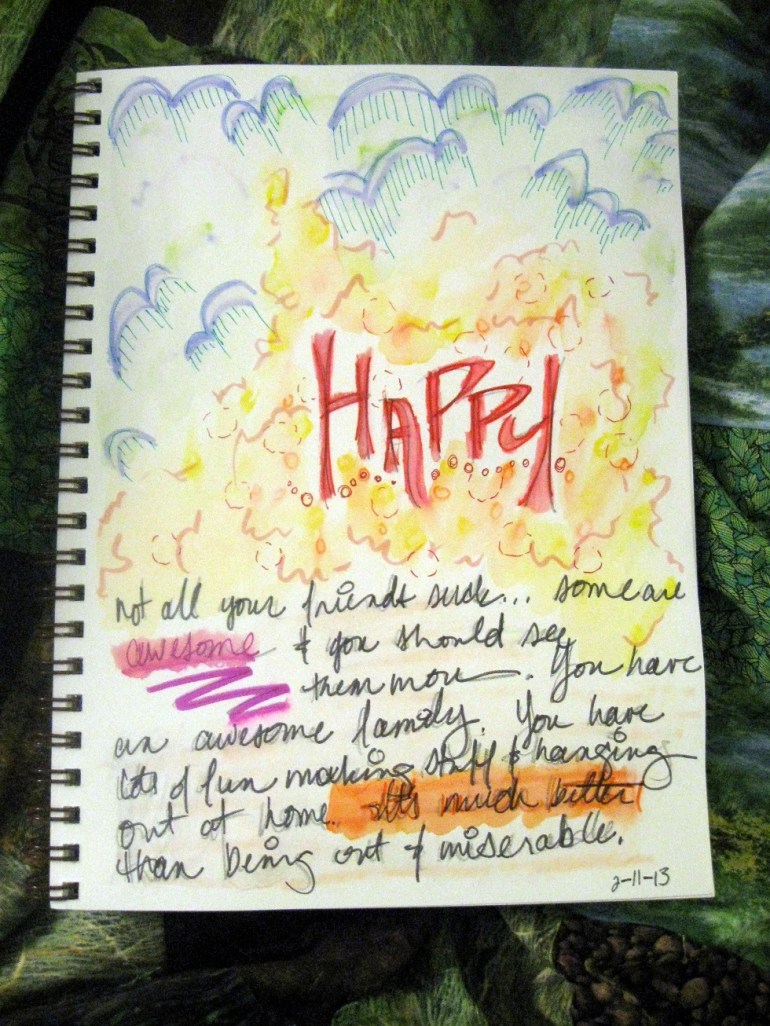 HAPPY
not all your friends suck... some are
awesome & you should see
them more. You have
an awesome family. You have
lots of fun making stuff & hanging
out at home. It's much better
than being out & miserable.
2-11-13